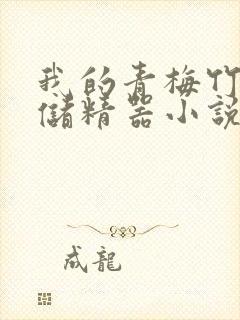 我的青梅竹
儲精器小說
成龍